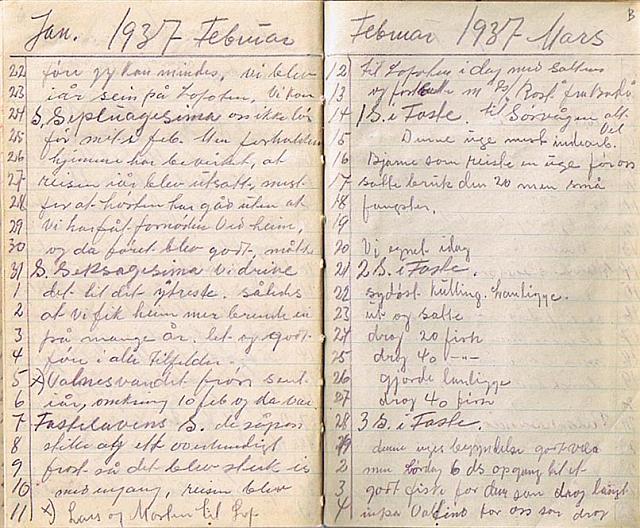 Jan. 1937 Februar
22 føre jeg kan mindes, vi blev
23 iår sein på Lofoten, vi kom
24 S. Septuagesima os ikke løs
25 før midt i feb. Men forholden
26 hjemme har bevirket, at
27 reisen iår blev utsatt, mest
28 for at høsten har gåd uten at
29 vi har fåt fornøden ved heim,
30 og da føret blev godt, måtte
31 S. Seksagesima vi drive
1 det til det ytreste. således
2 at vi fik heim mer brende en
3 på mange år. let og godt
4 føre i alle tilfelder.
5 x) Valnesvandet frøs sent
6 iår, omkring 10 feb og da var
7 Fastelavens S. de såpas
8 stille att ett overhendigt
9 frost så det blev sterk is
10 med engang, reisen blev
11 x) Lars og Morten til Lof.
Februar 1937 Mars
B
12 til Lofoten i dag med Saltens
13 og m Røst fra Bodø
14 1 S. i Faste. til Sørvågen alt
15 Denne uge mest indeerb.
16 Bjarne som reiste en uge før os
17 satte bruk den 20 men små
18 fangster.
19
20 Vi egnet idag
21 2 S. i Faste.
22 sydøst kulling. Landligge.
23 ut og satte
24 drog 20 fisk
25 drog 40 -"-
26 gjorde landligge
27 drog 40 fisk
28 3 S. i Faste.
1 denne uges begyndelse godt veir
2 men Lørdag 6 ds opgang til et
3 godt fiske for dem som drog langt
4 inpå for oss som drog